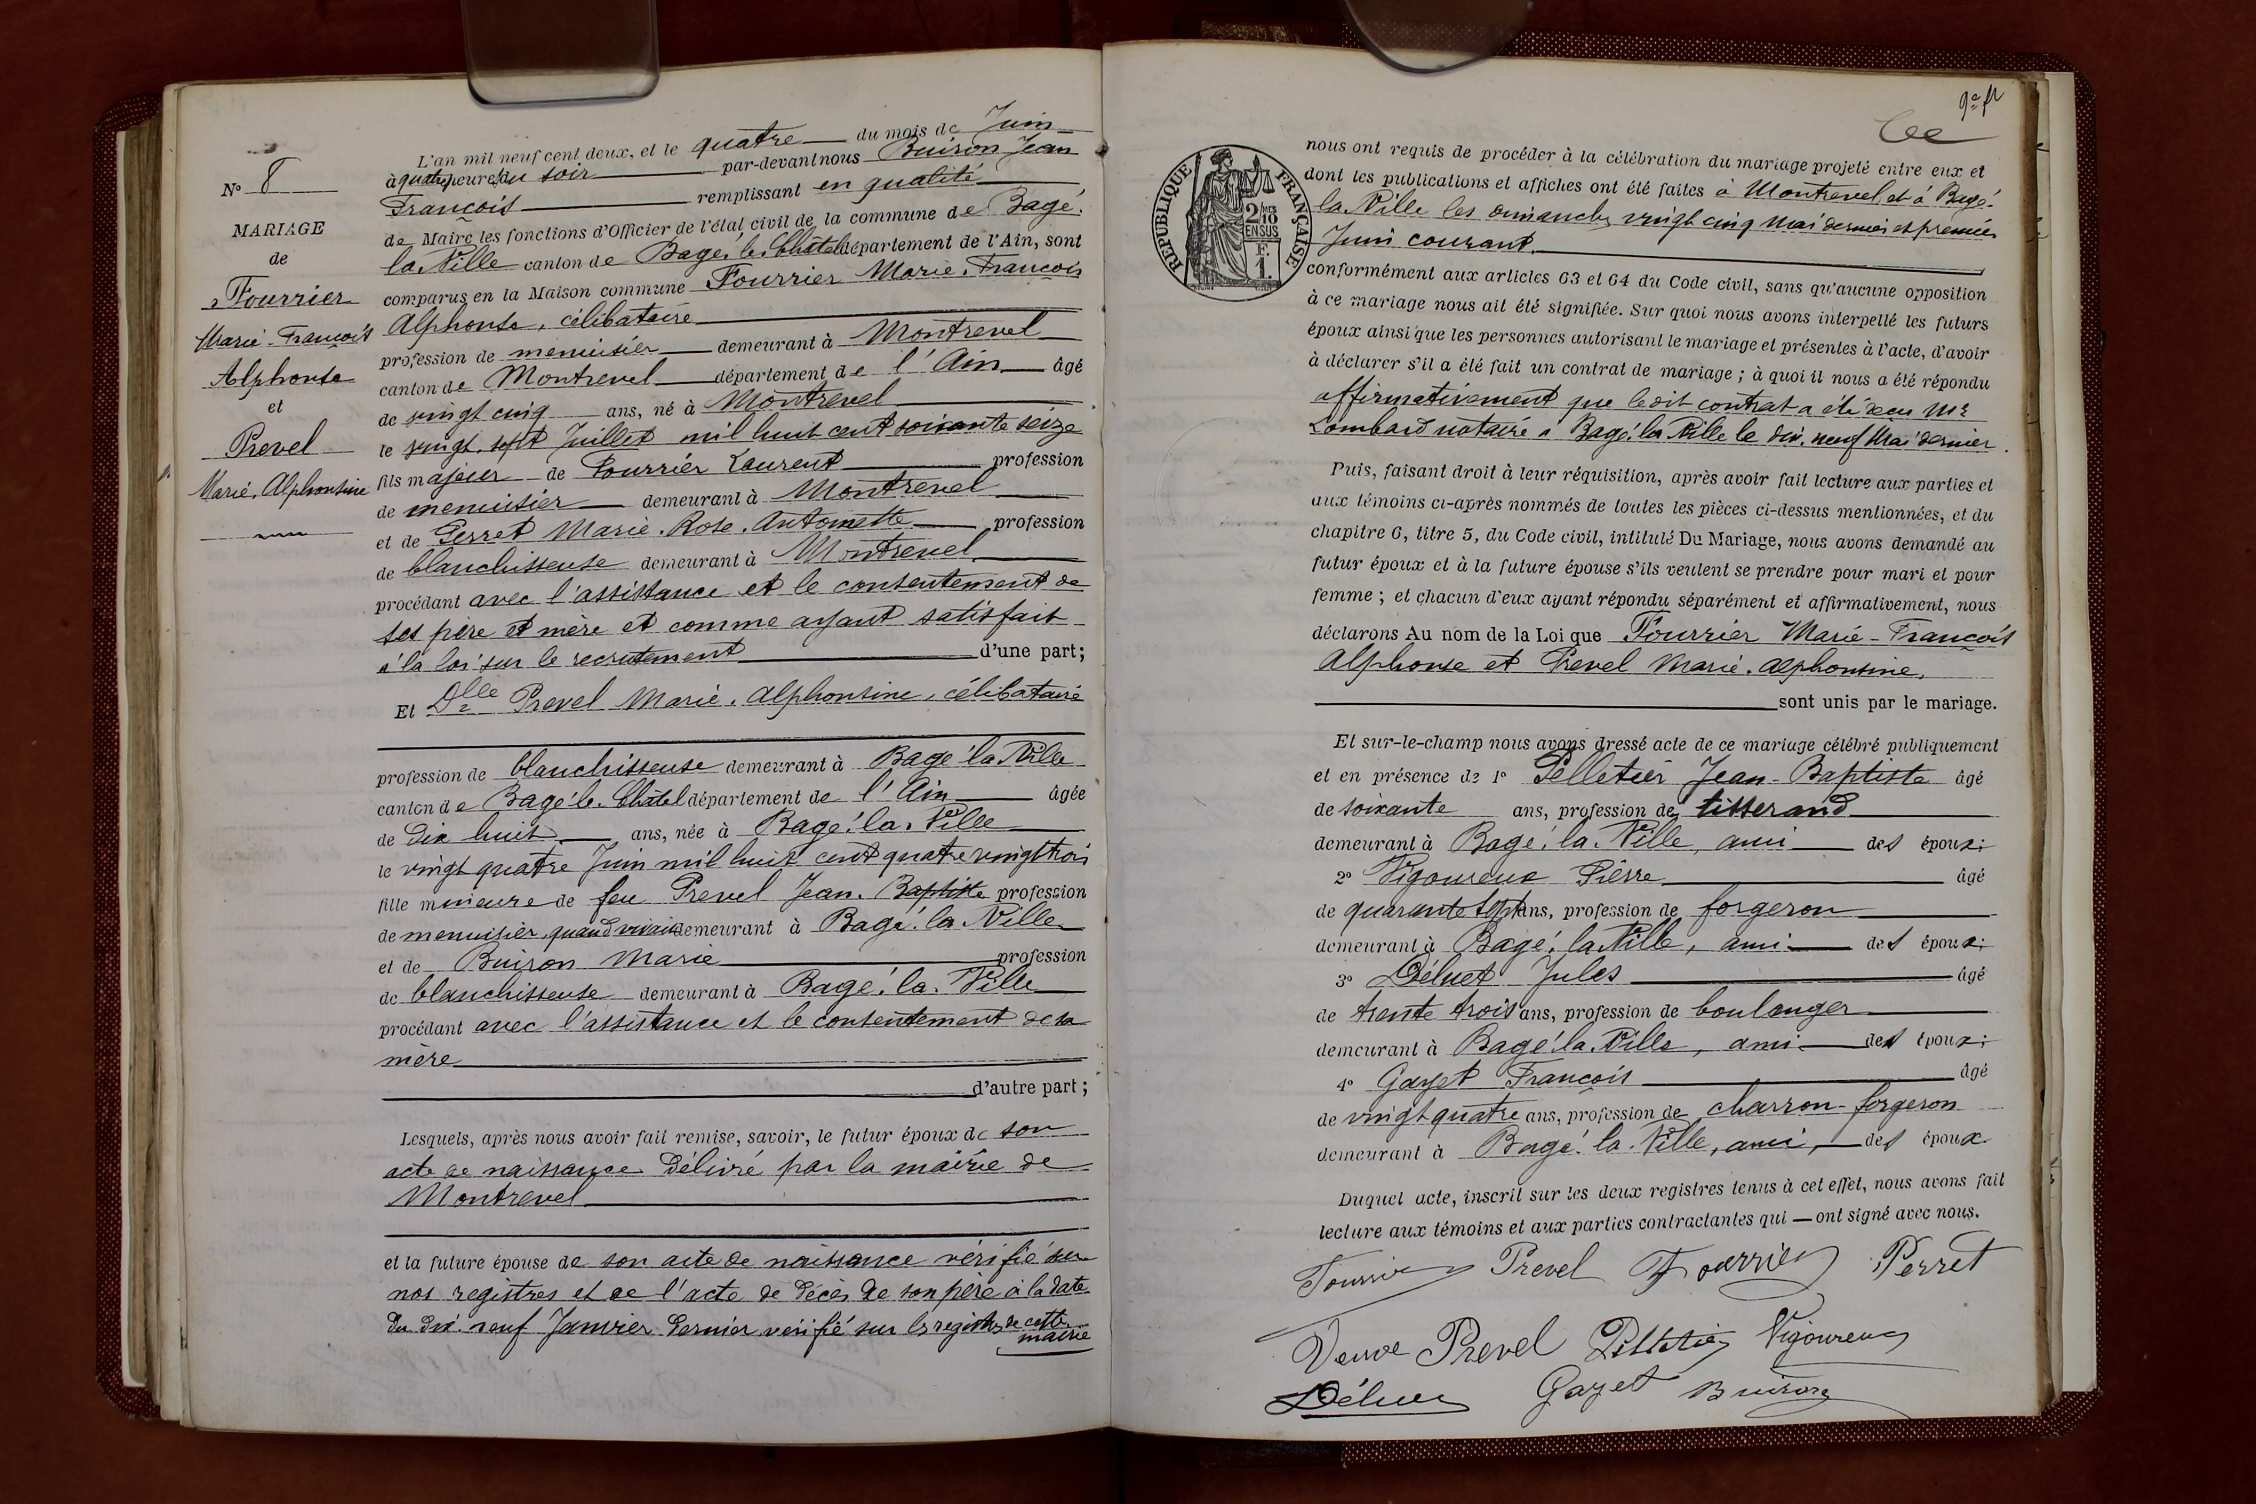 N° 8
MARIAGE
de
Fourrier
Marie-François
Alphonse
et
Prevel
Marie-Alphonsine
L'an mil neuf cent deux, et le quatre du mois de Juin
à quatre heures du soir par-devant nous Buiron Jean
François remplissant en qualité
de Maire les fonctions d'Officier de l'état civil de la commune de Bagé-
la-Ville canton de Bagé-le-Châtel département de l'Ain, sont
comparus en la Maison commune Fourrier Marie-François
Alphonse, célibataire
profession de menuisier demeurant à Montrevel
canton de Montrevel département de l'Ain âgé
de vingt cinq ans, né à Montrevel
le vingt-sept Juillet mil huit cent soixante seize
fils majeur de Fourrier Laurent profession
de menuisier demeurant à Montrevel
et de Perret Marie-Rose-Antoinette profession
de blanchisseuse demeurant à Montrevel
procédant avec l'assistance et le consentement de
ses père et mère et comme ayant satisfait
à la loi sur le recrutement d'une part;
Et Dlle Prevel Marie-Alphonsine, célibataire
profession de blanchisseuse demeurant à Bagé-la-Ville
canton de Bagé-le-Châtel département de l'Ain âgée
de dix huit ans, née à Bagé-la-Ville
le vingt quatre Juin mil huit cent quatre vingt trois
fille mineure de feu Prevel Jean-Baptiste profession
de menuisier, quand vivait demeurant à Bagé-la-Ville
et de Buiron Marie profession
de blanchisseuse demeurant à Bagé-la-Ville
procédant avec l'assistance et le consentement de sa
mère
d'autre part;
Lesquels, après nous avoir fait remise, savoir, le futur époux de son
acte de naissance délivré par la mairie de
Montrevel
et la future épouse de son acte de naissance vérifié sur
nos registres et de l'acte de décès de son père à la date
du dix-neuf Janvier dernier vérifié sur les registres de cette
mairie
RÉPUBLIQUE FRANÇAISE
2/10 EN SUS
F. 1.
nous ont requis de procéder à la célébration du mariage projeté entre eux et
dont les publications et affiches ont été faites à Montrevel et à Bagé-
la-Ville les dimanches vingt cinq Mai dernier et premier
Juin courant.
conformément aux articles 63 et 64 du Code civil, sans qu'aucune opposition
à ce mariage nous ait été signifiée. Sur quoi nous avons interpellé les futurs
époux ainsi que les personnes autorisant le mariage et présentes à l'acte, d'avoir
à déclarer s'il a été fait un contrat de mariage; à quoi il nous a été répondu
affirmativement que ledit contrat a été reçu Mr
Lombard notaire à Bagé-la-Ville le dix-neuf Mai dernier.
Puis, faisant droit à leur réquisition, après avoir fait lecture aux parties et
aux témoins ci-après nommés de toutes les pièces ci-dessus mentionnées, et du
chapitre 6, titre 5, du Code civil, intitulé Du Mariage, nous avons demandé au
futur époux et à la future épouse s'ils veulent se prendre pour mari et pour
femme; et chacun d'eux ayant répondu séparément et affirmativement, nous
déclarons Au nom de la Loi que Fourrier Marie-François
Alphonse et Prevel Marie-Alphonsine,
sont unis par le mariage.
Et sur-le-champ nous avons dressé acte de ce mariage célébré publiquement
et en présence de 1° Pelletier Jean-Baptiste âgé
de soixante ans, profession de tisserand
demeurant à Bagé-la-Ville, ami des époux;
2° Vigoureux Pierre âgé
de quarante sept ans, profession de forgeron
demeurant à Bagé-la-Ville, ami des époux;
3° Déluet Jules âgé
de trente trois ans, profession de boulanger
demeurant à Bagé-la-Ville, ami des époux;
4° Gayet François âgé
de vingt quatre ans, profession de charron-forgeron
demeurant à Bagé-la-Ville, ami, des époux
Duquel acte, inscrit sur les deux registres tenus à cet effet, nous avons fait
lecture aux témoins et aux parties contractantes qui — ont signé avec nous.
Fourrier Prevel Fourrier Perret
Veuve Prevel Pelletier Vigoureux
Déluet Gayet Buiron